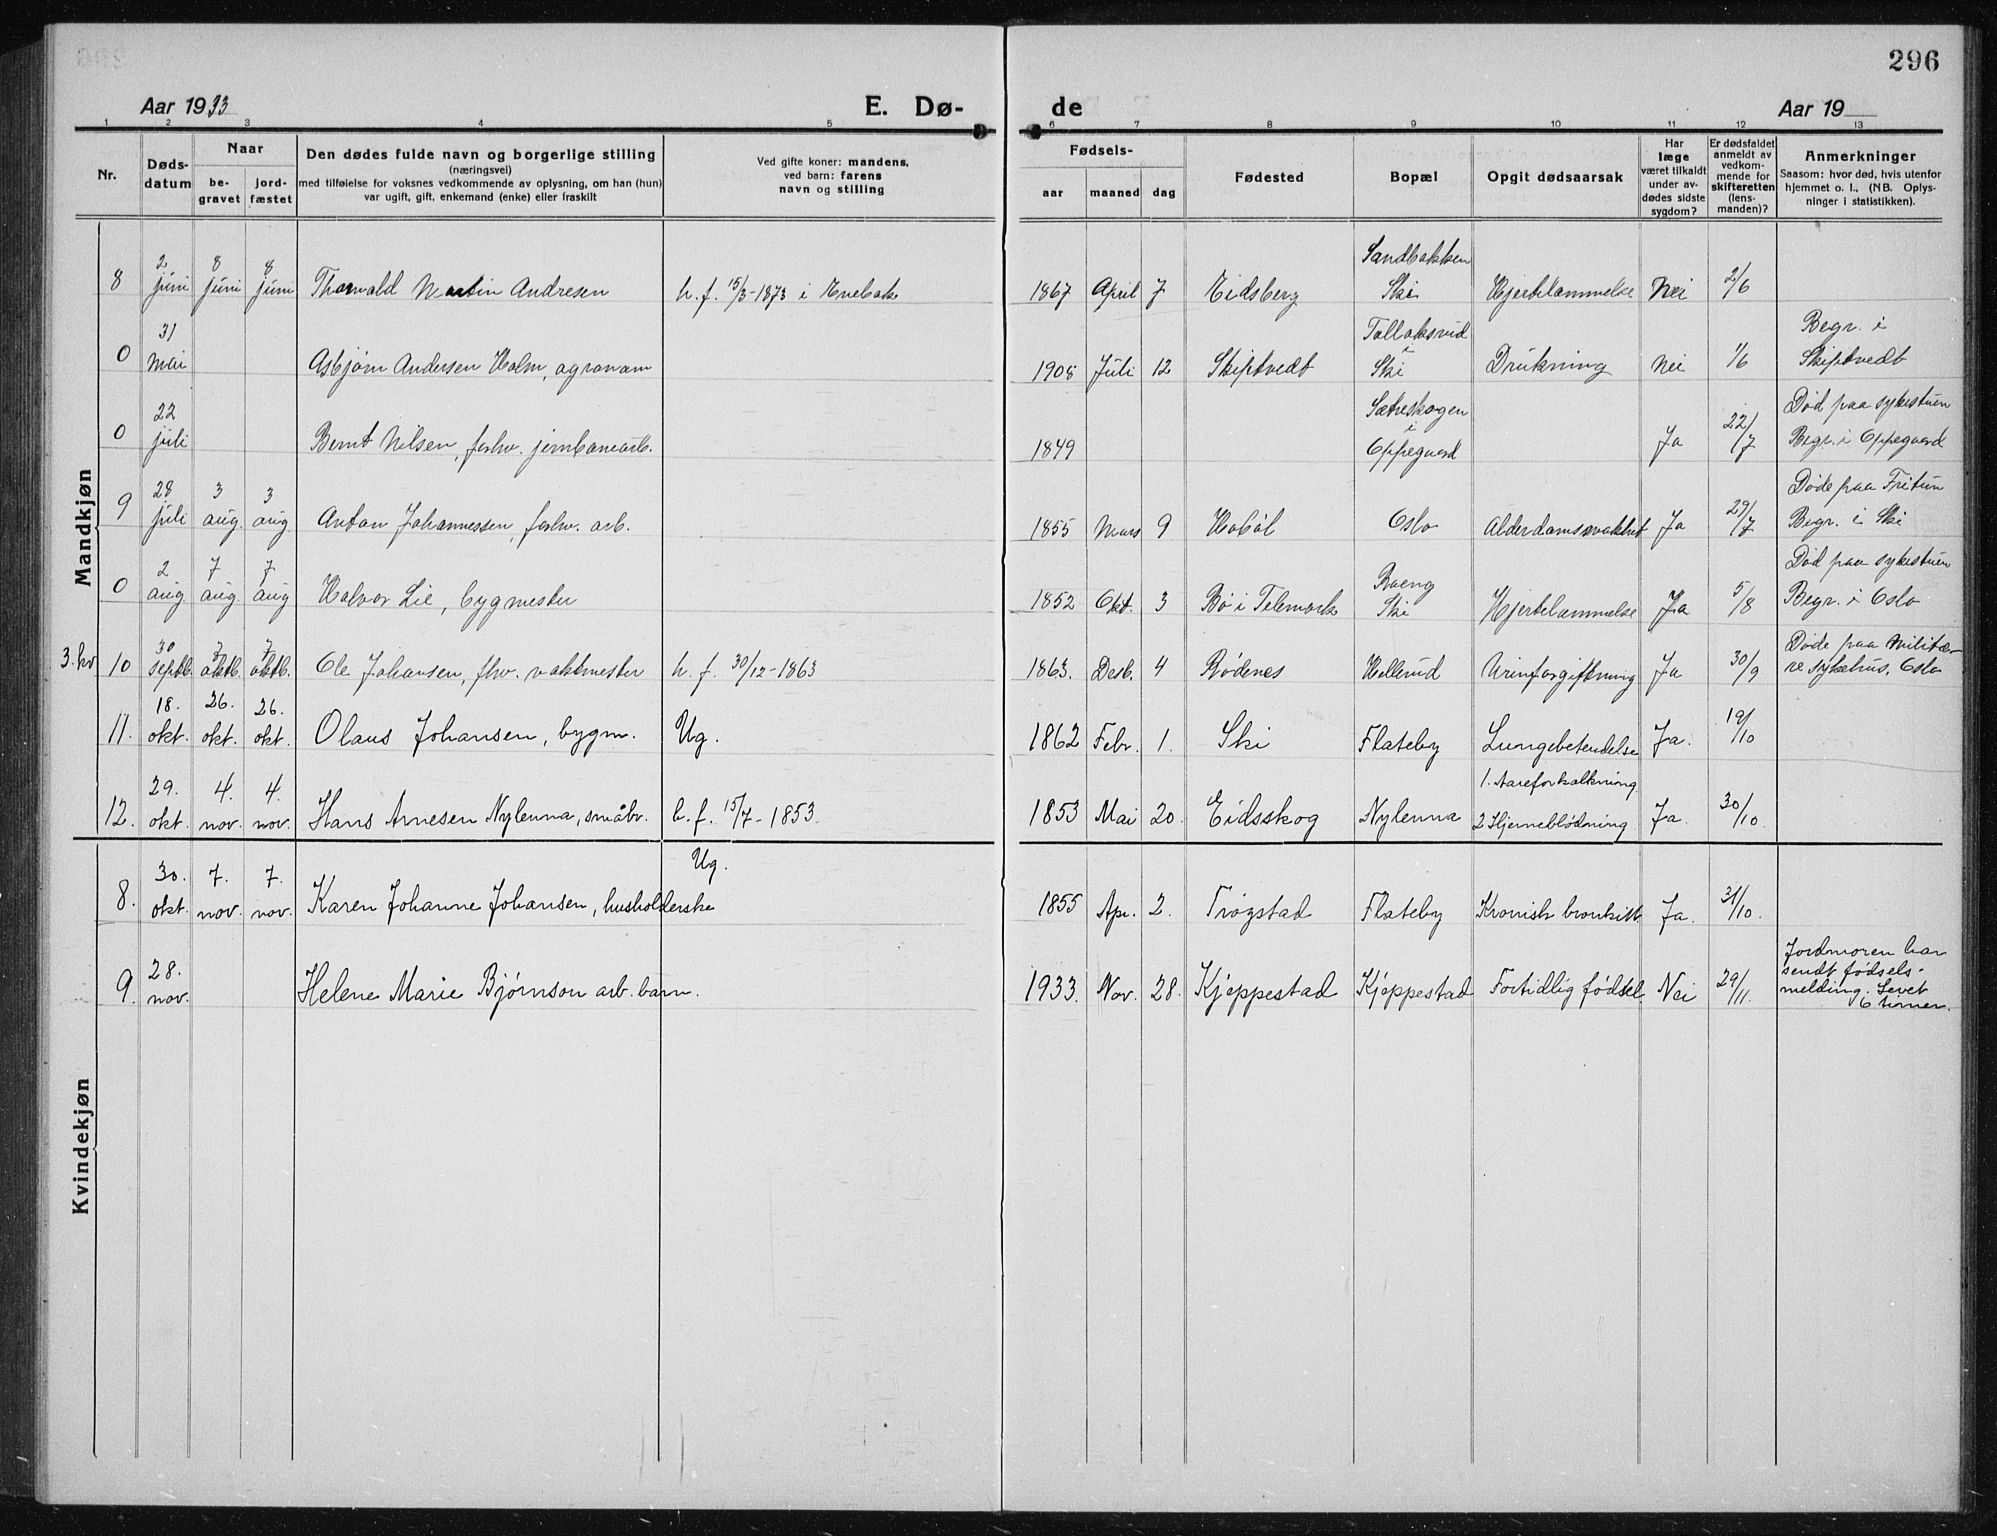 296
Aar 1933
E. Dø-
de
Aar 19
1 2 3 4 5 6 7 8 9 10 11 12 13
Nr.
Døds-
datum
Naar
be-
gravet
jord-
fæstet
Den dødes fulde navn og borgerlige stilling
(næringsvei)
med tilføielse for voksnes vedkommende av oplysning, om han (hun)
var ugift, gift, enkemand (enke) eller fraskilt
Ved gifte koner: mandens,
ved barn: farens
navn og stilling
Fødsels-
aar maaned dag
Fødested
Bopæl
Opgit dødsaarsak
Har
læge
været tilkaldt
under av-
dødes sidste
sygdom?
Er dødsfaldet
anmeldt av
vedkom-
mende for
skifteretten
(lens-
manden)?
Anmerkninger
Saasom: hvor død, hvis utenfor
hjemmet o. l., (NB. Oplys-
ninger i statistikken).
Mandkjøn
2 8 8 Sandbakken
8 juni juni juni Thorvald Martin Andresen h. f. 15/3-1873 i Enebak 1867 April 7 Eidsberg Ski Hjertelammelse Nei 2/6
31 Tallaksrud Begr. i
0 mai Asbjørn Andersen Holm, agronom 1908 Juli 12 Skiptvedt i Ski Drukning Nei 1/6 Skiptvedt
22 Sætreskogen Død paa sykestuen
0 juli Bernt Nilsen, forhv. jernbanearb. 1849 i Oppegaard Ja 22/7 Begr. i Oppegaard
28 3 3 Døde paa Fritun
9 juli aug. aug Anton Johannessen, forhv. arb. 1855 Mars 9 Hobøl Oslo Alderdomssvakhet Ja 29/7 Begr. i Ski
2 7 7 Død paa sykestuen
0 aug aug. aug Halvor Lie, bygmester 1852 Okt. 3 Bø i Telemark Ski Hjertelammelse Ja 5/8 Begr. i Oslo
30 7 7 Døde paa Militær-
3. hv 10 septb. oktb. oktb. Ole Johansen, fhv. vaktmester h. f. 30/12-1863 1863. Desb. 4 Rødenes Hellerud Urinforgiftning Ja 30/9 re sykehus, Oslo
18. 26. 26.
11. okt. okt. okt. Olaus Johansen, bygm. Ug. 1862 Febr. 1. Ski Flateby Lungebetendelse Ja. 19/10
29. 4. 4. 1. Aareforkalkning
12. okt. nov. nov. Hans Arnesen Nylenna, småbr. h. f. 15/7-1853 1853 Mai 20. Eidsskog Nylenna 2 Hjerneblødning Ja. 30/10.
Kvindekjøn
30. 7. 7. Ug.
8. okt. nov. nov. Karen Johanne Johansen, husholderske 1855 Apr. 2. Trøgstad Flateby Kronisk bronkitt Ja. 31/10.
28. Jordmoren har
sendt fødsels-
9. nov. Helene Marie Bjørnson arb. barn. 1933. Nov. 28. Kjøppestad Kjøppestad Fortidlig fødsel. Nei 29/11. melding. Levet
6 timer.